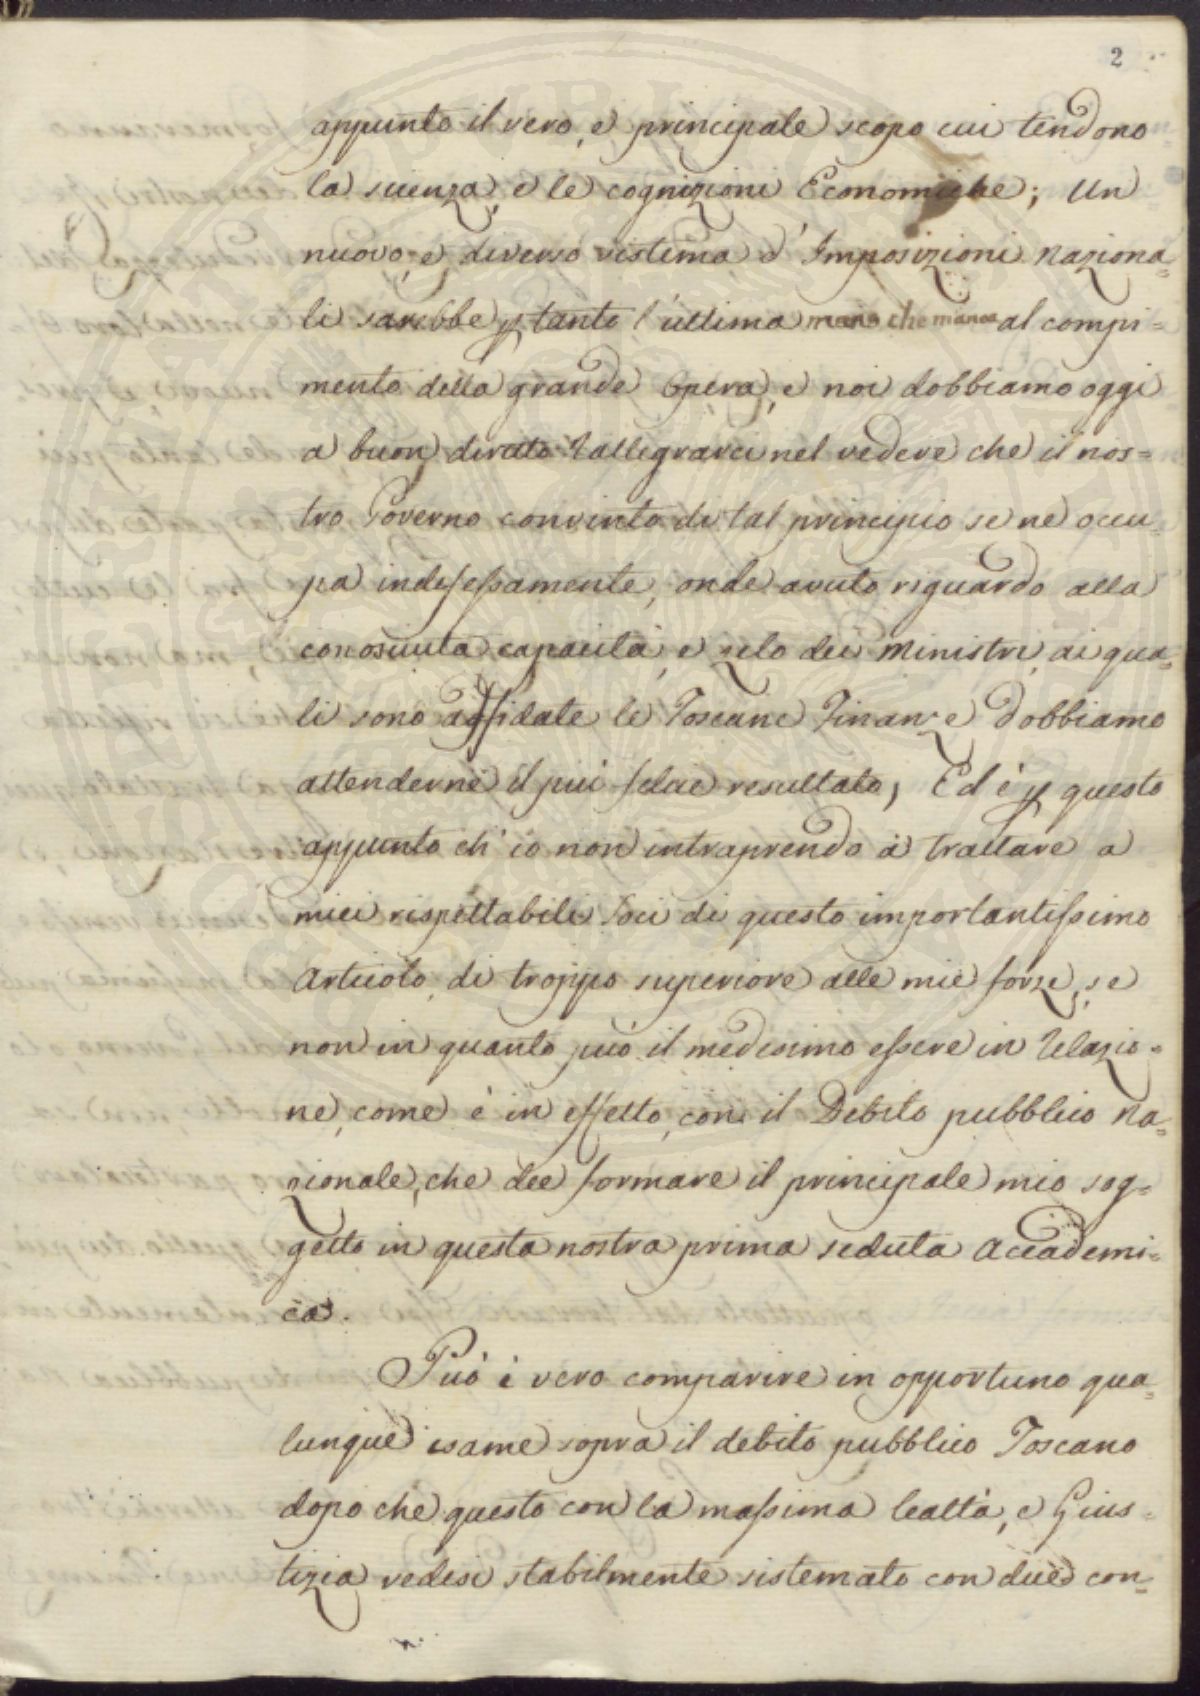 2
appunto il vero, e principale scopo cui tendono
la scienza, e le cognizioni Economiche; Un
nuovo, e diverso sistema d'Imposizioni naziona=
li sarebbe p tanto l'ultima mano che manca al compi=
mento della grande Opera, e noi dobbiamo oggi
a buon diritto rallegrarci nel vedere che il nos=
tro Governo convinto di tal principio se ne occu=
pa indefessamente, onde avuto riguardo alla
conosciuta capacità, e zelo dei Ministri, ai qua=
li sono affidate le Toscane Finanze dobbiamo
attenderne il più felice resultato; Ed è p questo
appunto ch'io non intraprendo a trattare a
miei rispettabili Soci di questo importantissimo
Articolo, di troppo superiore alle mie forze, se
non in quanto può il medesimo essere in relazio=
ne, come è in effetto, con il Debito pubblico na=
zionale, che dee formare il principale mio sog=
getto in questa nostra prima seduta Accademi=
ca.
Può è vero comparire in opportuno qua=
lunque esame sopra il debito pubblico Toscano
dopo che questo con la massima lealtà, e Gius=
tizia vedesi stabilmente sistemato con due con=